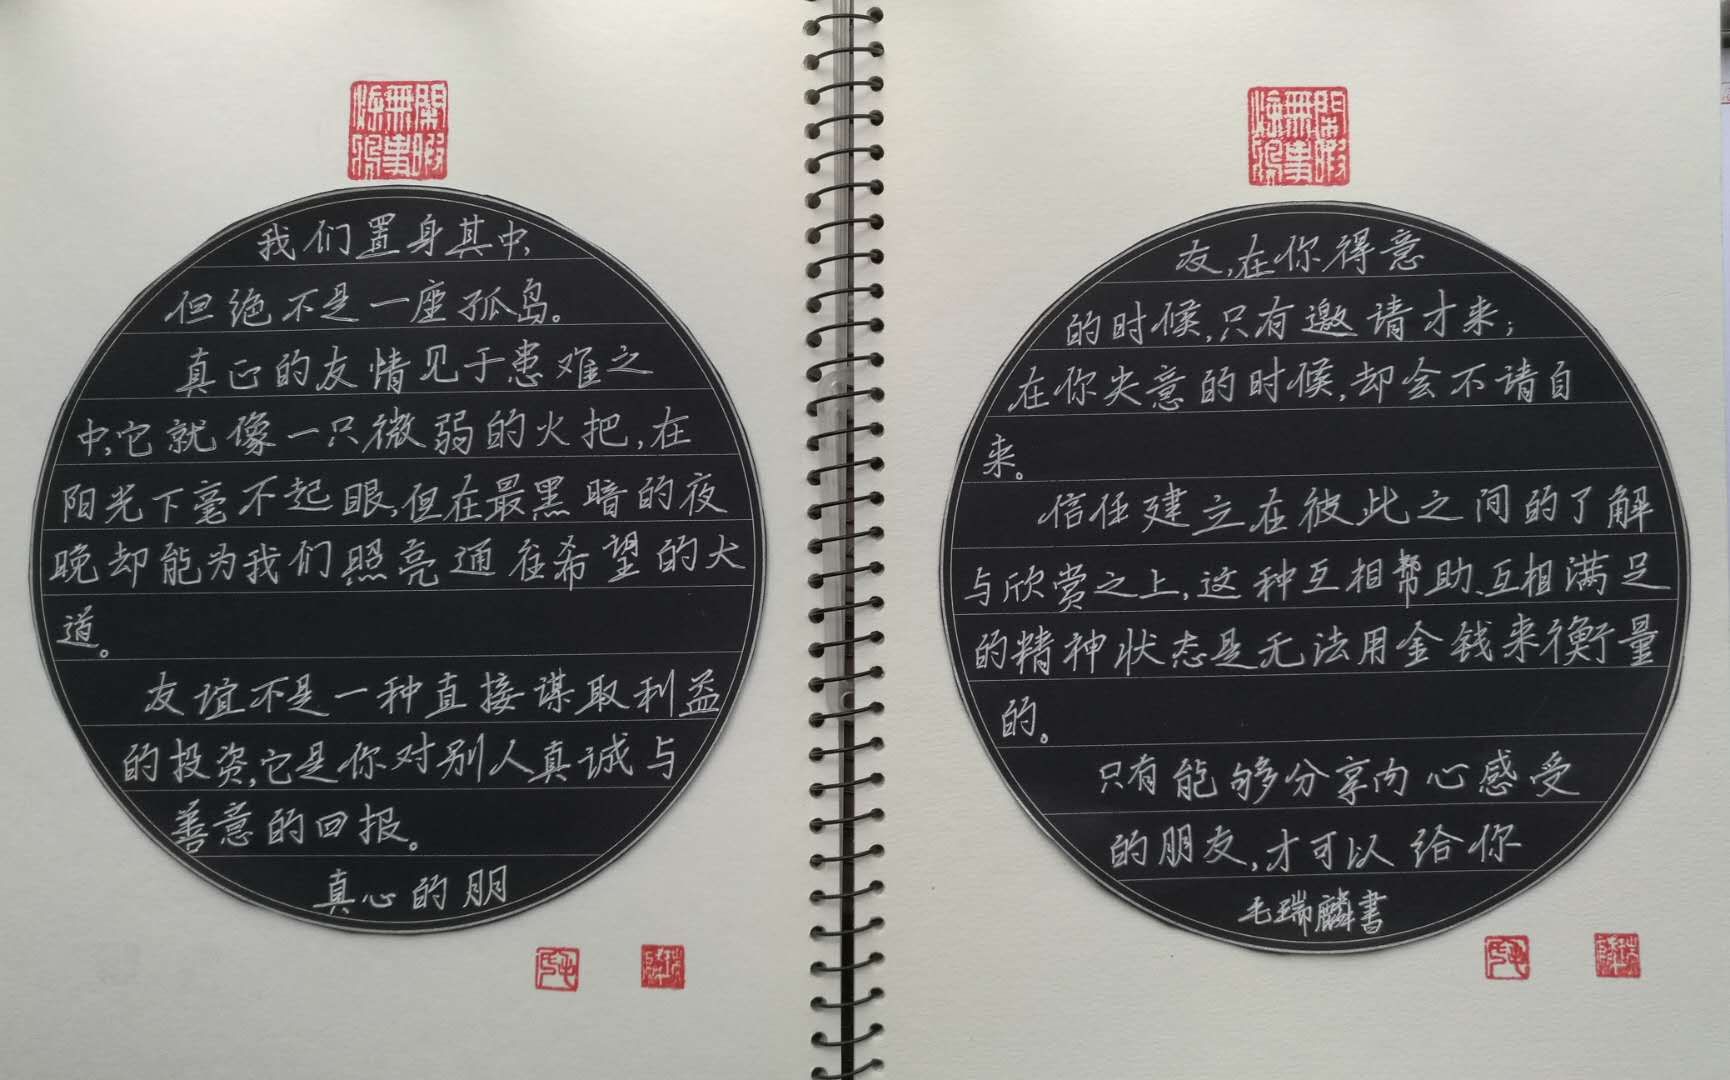 我们置身其中,
但绝不是一座孤岛。
真正的友情见于患难之
中,它就像一只微弱的火把,在
阳光下毫不起眼,但在最黑暗的夜
晚却能为我们照亮通往希望的大
道。
友谊不是一种直接谋取利益
的投资,它是你对别人真诚与
善意的回报。
真心的朋
友,在你得意
的时候,只有邀请才来;
在你失意的时候,却会不请自
来。
信任建立在彼此之间的了解
与欣赏之上,这种互相帮助、互相满足
的精神状态是无法用金钱来衡量
的。
只有能够分享内心感受
的朋友,才可以给你
毛瑞麟書